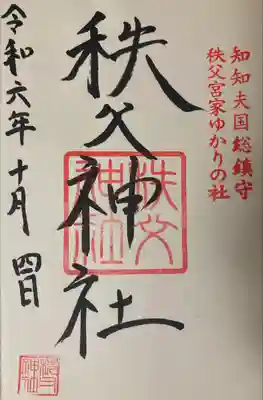 知知夫国総鎮守
秩父宮家ゆかりの社
秩父神社
秩父
神社
令和六年十月四日
秩父
神社